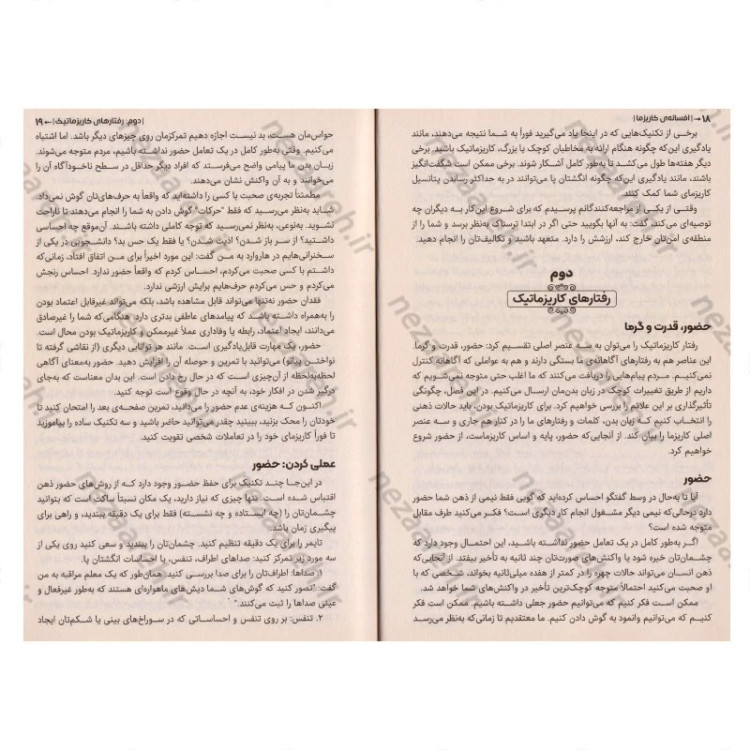 ۱۸ | افسانه‌ی کاریزما |
برخی از تکنیک‌هایی که در اینجا یاد می‌گیرید فوراً به شما نتیجه می‌دهند، مانند
یادگیری این‌که چگونه هنگام ارائه به مخاطبان کوچک یا بزرگ، کاریزماتیک باشید. برخی
دیگر هفته‌ها طول می‌کشد تا به‌طور کامل آشکار شوند. برخی ممکن است شگفت‌انگیز
باشند، مانند یادگیری این‌که چگونه انگشتان پا می‌توانند در به حداکثر رساندن پتانسیل
کاریزمای شما کمک کنند.
وقتی از یکی از مراجعه‌کنندگانم پرسیدم که برای شروع این‌کار به دیگران چه
توصیه‌ای می‌کند، گفت: به آنها بگویید حتی اگر در ابتدا ترسناک به‌نظر برسد و شما را از
منطقه‌ی امن‌تان خارج کند، ارزشش را دارد. متعهد باشید و تکالیف‌تان را انجام دهید.
دوم
رفتارهای کاریزماتیک
حضور، قدرت و گرما
رفتار کاریزماتیک را می‌توان به سه عنصر اصلی تقسیم کرد: حضور، قدرت و گرما.
این عناصر هم به رفتارهای آگاهانه‌ی ما بستگی دارند و هم به عواملی که آگاهانه کنترل
نمی‌کنیم. مردم پیام‌هایی را دریافت می‌کنند که ما اغلب حتی متوجه نمی‌شویم که
داریم از طریق تغییرات کوچک در زبان بدن‌مان ارسال می‌کنیم. در این فصل، چگونگی
تأثیرگذاری بر این علائم را بررسی خواهیم کرد. برای کاریزماتیک بودن، باید حالات ذهنی
را انتخاب کنیم که زبان بدن، کلمات و رفتارهای ما را در کنار هم جاری و سه عنصر
اصلی کاریزما را بیان کند. از آنجایی‌که حضور، پایه و اساس کاریزماست، از حضور شروع
خواهیم کرد.
حضور
آیا تا به‌حال در وسط گفتگو احساس کرده‌اید که گویی فقط نیمی از ذهن شما حضور
دارد درحالی‌که نیمی دیگر مشغول انجام کار دیگری است؟ فکر می‌کنید طرف مقابل
متوجه شده است؟
اگر به‌طور کامل در یک تعامل حضور نداشته باشید، این احتمال وجود دارد که
چشمان‌تان خیره شود یا واکنش‌های صورت‌تان چند ثانیه به تأخیر بیفتد. از آنجایی‌که
ذهن انسان می‌تواند حالات چهره را در کمتر از هفده میلی‌ثانیه بخواند، شخصی که با
او صحبت می‌کنید احتمالاً متوجه کوچک‌ترین تأخیر در واکنش‌های شما خواهد شد.
ممکن است فکر کنیم که می‌توانیم حضور جعلی داشته باشیم. ممکن است فکر
کنیم که می‌توانیم وانمود به گوش دادن کنیم. ما معتقدیم تا زمانی‌که به‌نظر می‌رسد
| دوم: رفتارهای کاریزماتیک | ۱۹
حواس‌مان هست، بد نیست اجازه دهیم تمرکزمان روی چیزهای دیگر باشد. اما اشتباه
می‌کنیم. وقتی به‌طور کامل در یک تعامل حضور نداشته باشیم، مردم متوجه می‌شوند.
زبان بدن ما پیامی واضح می‌فرستد که افراد دیگر حداقل در سطح ناخودآگاه آن را
می‌خوانند و به آن واکنش نشان می‌دهند.
مطمئناً تجربه‌ی صحبت با کسی را داشته‌اید که واقعاً به حرف‌های‌تان گوش نمی‌داد.
شاید به‌نظر می‌رسید که فقط "حرکات" گوش دادن به شما را انجام می‌دهند تا ناراحت
نشوید. به‌نوعی، به‌نظر نمی‌رسید که توجه کاملی داشته باشند. آن‌موقع چه احساسی
داشتید؟ از سر باز شدن؟ اذیت شدن؟ یا فقط یک حس بد؟ دانشجویی در یکی از
سخنرانی‌هایم در هاروارد به من گفت: این مورد اخیراً برای من اتفاق افتاد، زمانی‌که
داشتم با کسی صحبت می‌کردم، احساس کردم که واقعاً حضور ندارد. احساس رنجش
می‌کردم و حس می‌کردم حرف‌هایم برایش ارزشی ندارد.
فقدان حضور نه‌تنها می‌تواند قابل مشاهده باشد، بلکه می‌تواند غیرقابل اعتماد بودن
را به‌همراه داشته باشد که پیامدهای عاطفی بدتری دارد. هنگامی‌که شما را غیرصادق
می‌دانند، ایجاد اعتماد، رابطه یا وفاداری عملاً غیرممکن و کاریزماتیک بودن محال است.
حضور، یک مهارت قابل‌یادگیری است. مانند هر توانایی دیگری (از نقاشی گرفته تا
نواختن پیانو) می‌توانید با تمرین و حوصله آن را افزایش دهید. حضور به‌معنای آگاهی
لحظه‌به‌لحظه از آن‌چیزی است که در حال رخ دادن است. این بدان معناست که به‌جای
درگیر شدن در افکار خود، به آنچه در حال وقوع است توجه کنید.
اکنون که هزینه‌ی عدم حضور را می‌دانید، تمرین صفحه‌ی بعد را امتحان کنید تا
خودتان را محک بزنید، ببینید چقدر می‌توانید حاضر باشید و سه تکنیک ساده را بیاموزید
تا فوراً کاریزمای خود را در تعاملات شخصی تقویت کنید.
عملی کردن: حضور
در این‌جا چند تکنیک برای حفظ حضور وجود دارد که از روش‌های حضور ذهن
اقتباس شده است. تنها چیزی که نیاز دارید، یک مکان نسبتاً ساکت است که بتوانید
چشمان‌تان را (چه ایستاده و چه نشسته) فقط برای یک دقیقه ببندید، و راهی برای
پیگیری زمان باشد.
تایمر را برای یک دقیقه تنظیم کنید. چشمان‌تان را ببندید و سعی کنید روی یکی از
سه مورد زیر تمرکز کنید: صداهای اطراف، تنفس، یا احساسات انگشتان پا.
۱. صداها: اطراف‌تان را برای صدا بررسی کنید. همان‌طور که یک معلم مراقبه به من
گفت: "تصور کنید که گوش‌های شما دیش‌های ماهواره‌ای هستند که به‌طور غیرفعال و
عینی صداها را ثبت می‌کنند."
۲. تنفس: بر روی تنفس و احساساتی که در سوراخ‌های بینی یا شکم‌تان ایجاد